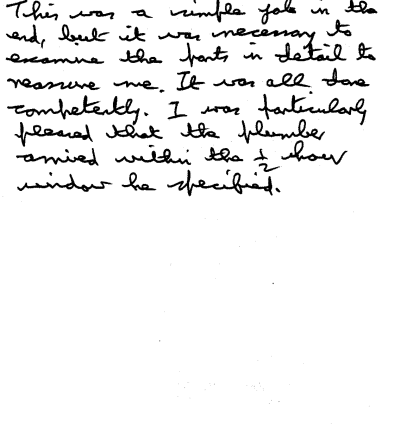 This was a simple job in the
end, but it was necessary to
examine the parts in detail to
reassure me. It was all done
competently. I was particularly
pleased that the plumber
arrived within the ½ hour
window he specified.